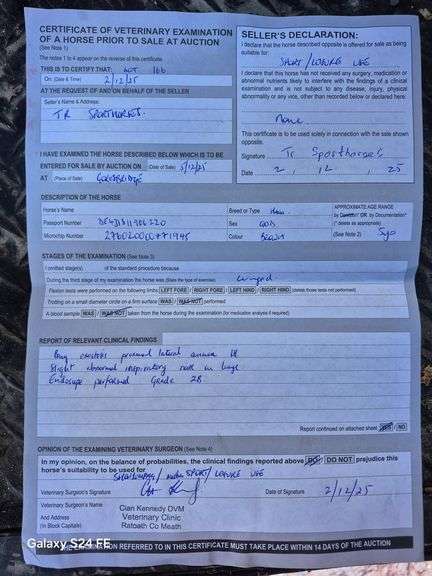 CERTIFICATE OF VETERINARY EXAMINATION
OF A HORSE PRIOR TO SALE AT AUCTION
(See Note 1)
The notes 1 to 4 appear on the reverse of this certificate.
THIS IS TO CERTIFY THAT: LOT 166
On: (Date & Time) 2/12/25
AT THE REQUEST OF AND ON BEHALF OF THE SELLER
Seller's Name & Address:
TR SPORTHORSES.
I HAVE EXAMINED THE HORSE DESCRIBED BELOW WHICH IS TO BE
ENTERED FOR SALE BY AUCTION ON (Date of Sale) 5/12/25
AT (Place of Sale) GORESBRIDGE
SELLER'S DECLARATION:
I declare that the horse described opposite is offered for sale as being
suitable for:
SPORT / LEISURE USE
I declare that this horse has not received any surgery, medication or
abnormal nutrients likely to interfere with the findings of a clinical
examination and is not subject to any disease, injury, physical
abnormality or any vice, other than recorded below or declared here:
None
This certificate is to be used solely in connection with the sale shown
opposite.
Signature Tr Sporthorses
Date 2 , 12 , 25
DESCRIPTION OF THE HORSE
Horse's Name
Breed or Type
APPROXIMATE AGE RANGE
OR By Documentation*
(* delete as appropriate)
Passport Number
Sex
Microchip Number
Colour Brown
(See Note 2) 5yo
STAGES OF THE EXAMINATION (See Note 3)
I omitted stage(s) of the standard procedure because
During the third stage of my examination the horse was (State the type of exercise) Lunged
Flexion tests were performed on the following limbs LEFT FORE / RIGHT FORE / LEFT HIND / RIGHT HIND (delete those tests not performed)
Trotting on a small diameter circle on a firm surface WAS / WAS NOT performed
A blood sample WAS / WAS NOT taken from the horse during the examination (for medication analysis if required)
REPORT OF RELEVANT CLINICAL FINDINGS
Bony exostosis proximal lateral
Slight abnormal inspiratory noise on lunge
Endoscope performed Grade 2B
Report continued on attached sheet YES / NO
OPINION OF THE EXAMINING VETERINARY SURGEON (See Note 4)
In my opinion, on the balance of probabilities, the clinical findings reported above DO / DO NOT prejudice this
horse's suitability to be used for
SPORT / LEISURE USE
Veterinary Surgeon's Signature
Date of Signature 2/12/25
Veterinary Surgeon's Name
And Address
(In Block Capitals)
Cian Kennedy DVM
Veterinary Clinic
Ratoath Co Meath
EXAMINATION REFERRED TO IN THIS CERTIFICATE MUST TAKE PLACE WITHIN 14 DAYS OF THE AUCTION
Galaxy S24 FE